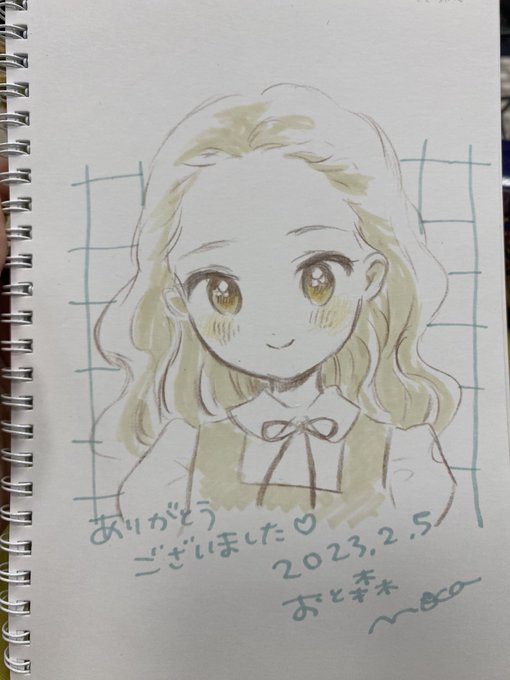 ありがとう
ございました♡
2023.2.5
おと森
moca